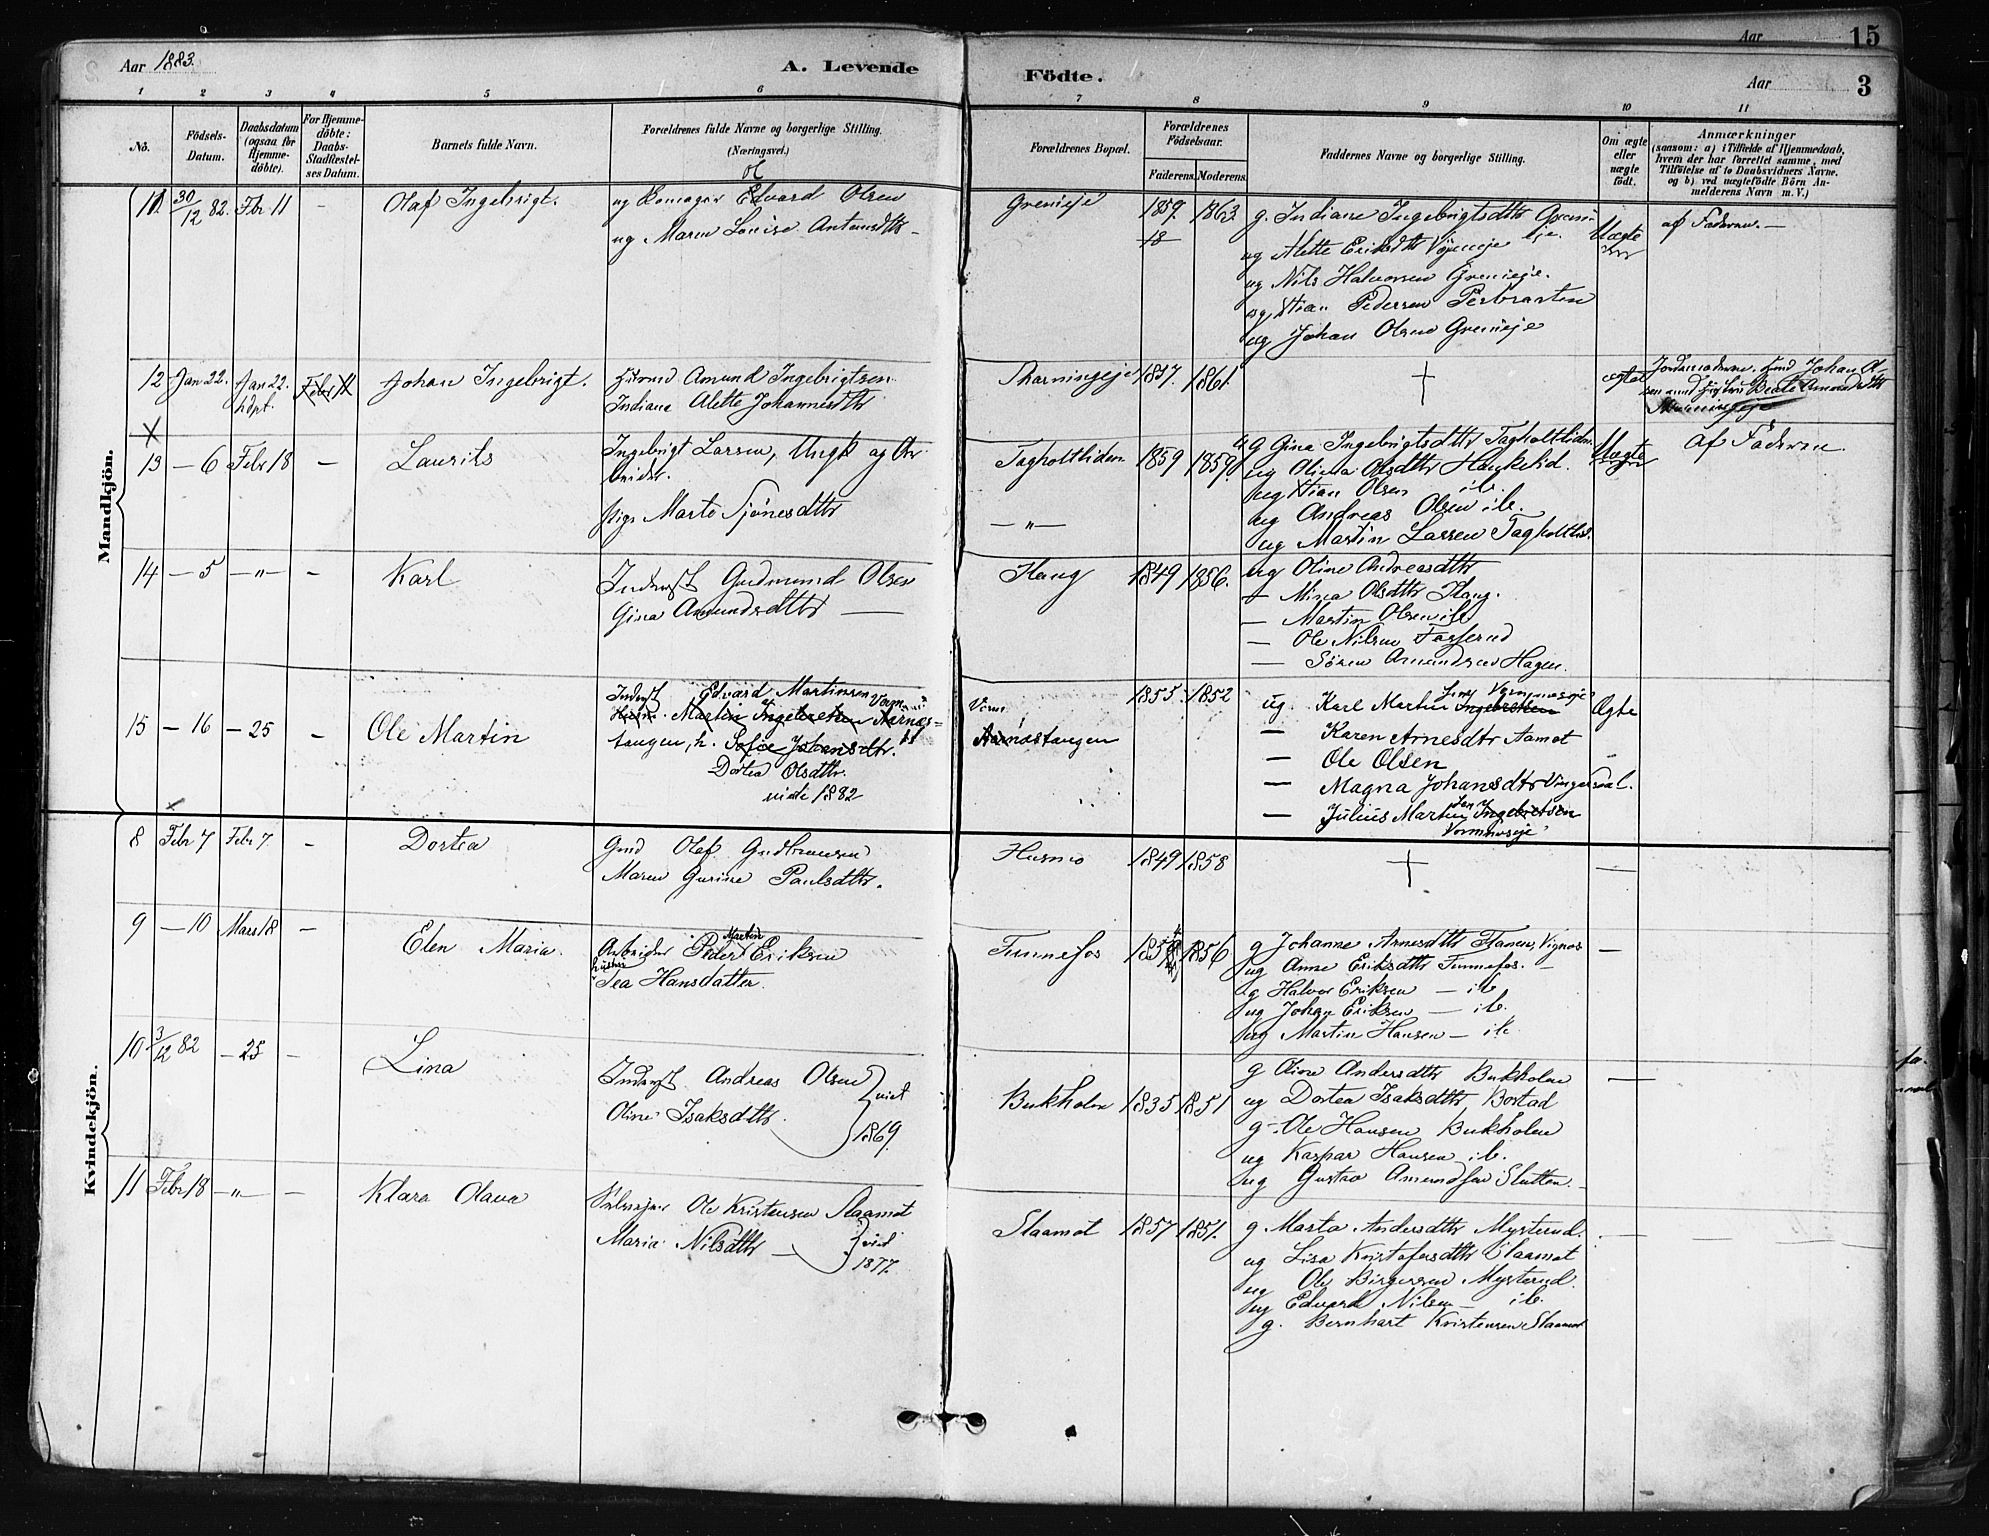 Aar 1883.
A. Levende Födte.
Aar 15
Aar 3
1 2 3 4 5 6 7 8 9 10 11
No.
Födsels-Datum.
Daabsdatum (ogsaa for Hjemme-döbte).
For Hjemme-döbte: Daabs-Stadfæstel-ses Datum.
Barnets fulde Navn.
Forældrenes fulde Navne og borgerlige Stilling.
(Næringsvei.)
Forældrenes Bopæl.
Forældrenes Födselsaar.
Faderens. Moderens.
Faddernes Navne og borgerlige Stilling.
Om ægte eller uægte födt.
Anmærkninger
(saasom: a) i Tilfælde af Hjemmedaab,
hvem der har forrettet samme, med
Tilföielse af to Daabsvidners Navne.
og b) ved uægtefödte Börn An-
melderens Navn m. V.)
Mandkjön.
11. 30/12 82. Fbr 11 - Olaf Ingebrigt.
ug Edvard Olsen
ug Maren Louise Antonsdtr -
Grenieje 1859. 1863.
18
g. Indiane Ingebrigtsdtr Greni-
eje.
ug Alette Eriksdtr
ug Nils Halvorsen Grenieje.
ug Kristian Pedersen
ug Johan Olsen Grenieje
Uægte
af Faderen. -
12 Jan 22. Jan 22. hdpt. Febr 11 Johan Ingebrigt.
Amund Ingebrigtsen
Indiane Alette Johannesdtr
1837. 1861.
†
ægte
Johan Ol-
sen Beate Amundsdtr
X
13 - 6 Febr 18 - Laurits
Ingebrigt Larsen, Ungk og Ar-
beider.
pige Marte Sjönesdtr
Tagholtliden 1859 1859.
- " -
g Gina Ingebrigtsdtr Tagholtliden.
ug Olina Olsdtr Haukelid.
ug Xtian Olsen ib.
ug Andreas Olsen ib.
ug Martin Larsen Tagholtlid.
Uægte
af Faderen
14 - 5 - " - - Karl
Inderst Gudmund Olsen
Gina Amundsdtr -
Haug 1849 1856.
ug Oline Andreasdtr
- Mina Olsdtr Haug.
- Martin Olsen ib
- Ole Nilsen
- Sören Amundsen Hagen.
15 - 16 - 25 - Ole Martin
Inderst Edvard Martinsen
Martin Ingebretsen Aarnæs-
tangen, h. Sofie Johansdtr.
Dortea Olsdtr.
viede 1882
Aarnæstangen
1855 1852
ug. Karl Martin Ingebretsen
- Karen Arnesdtr Aamot
- Ole Olsen
- Magna Johansdtr
- Julius Martin Ingebretsen
Vormnæseje
Ægte
Kvindekjön.
8 Febr 7 Febr 7. - Dortea
Gmd Olof Gudbransen
Maren Gurine Paulsdtr.
Husmo 1849 1858
†
-
9 - 10 Mars 18 - Elen Maria.
Arbeider Peder Martin Eriksen
hustru Tea Hansdatter.
Funnefos 1856
g Johanne Arnesdtr
ug Anne Eriksdtr Funnefos. -
g Halvor Eriksen - ib
ug Johan Eriksen - ib.
ug Martin Hansen - ib.
-
10 3/12 82 - 25 - Lina
Inderst Andreas Olsen
Oline Isaksdtr.
viet
1869.
Bukholm 1835 1851
g Oline Andersdtr Bukholm
ug Dortea Isaksdtr
g - Ole Hansen Bukholm
ug Kaspar Hansen ib.
ug Gustav Amundsen Slatten.
-
11 Febr 18 - " - - Klara Olava
Ole Kristensen Slaamot
Maria Nilsdtr -
viet
1877.
Slaamot 1857 1851.
g Marta Andersdtr Mysterud.
ug Lisa Kristofersdtr Slaamot
ug Ole Birgersen Mysterud.
ug Edvard Nilsen - ib.
g. Bernhart Kristensen Slaamot
- - -